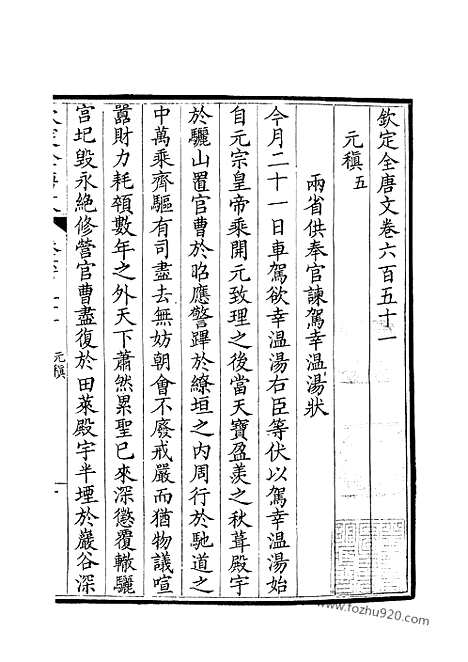 欽定全唐文卷六百五十一
元稹五
兩省供奉官諫駕幸溫湯狀
今月二十一日車駕欲幸溫湯右臣等伏以駕幸溫湯始
自元宗皇帝乘開元致理之後當天寶盈羨之秋葺殿宇
於驪山置官曹於昭應警蹕於繚垣之內周行於馳道之
中萬乘齊驅有司盡去無妨朝會不廢戒嚴而猶物議喧
囂財力耗顇數年之外天下蕭然累聖已來深懲覆轍驪
宮圮毀永絕修營官曹盡復於田萊殿宇半堙於巖谷深
元稹
一
www.fozhu920.com